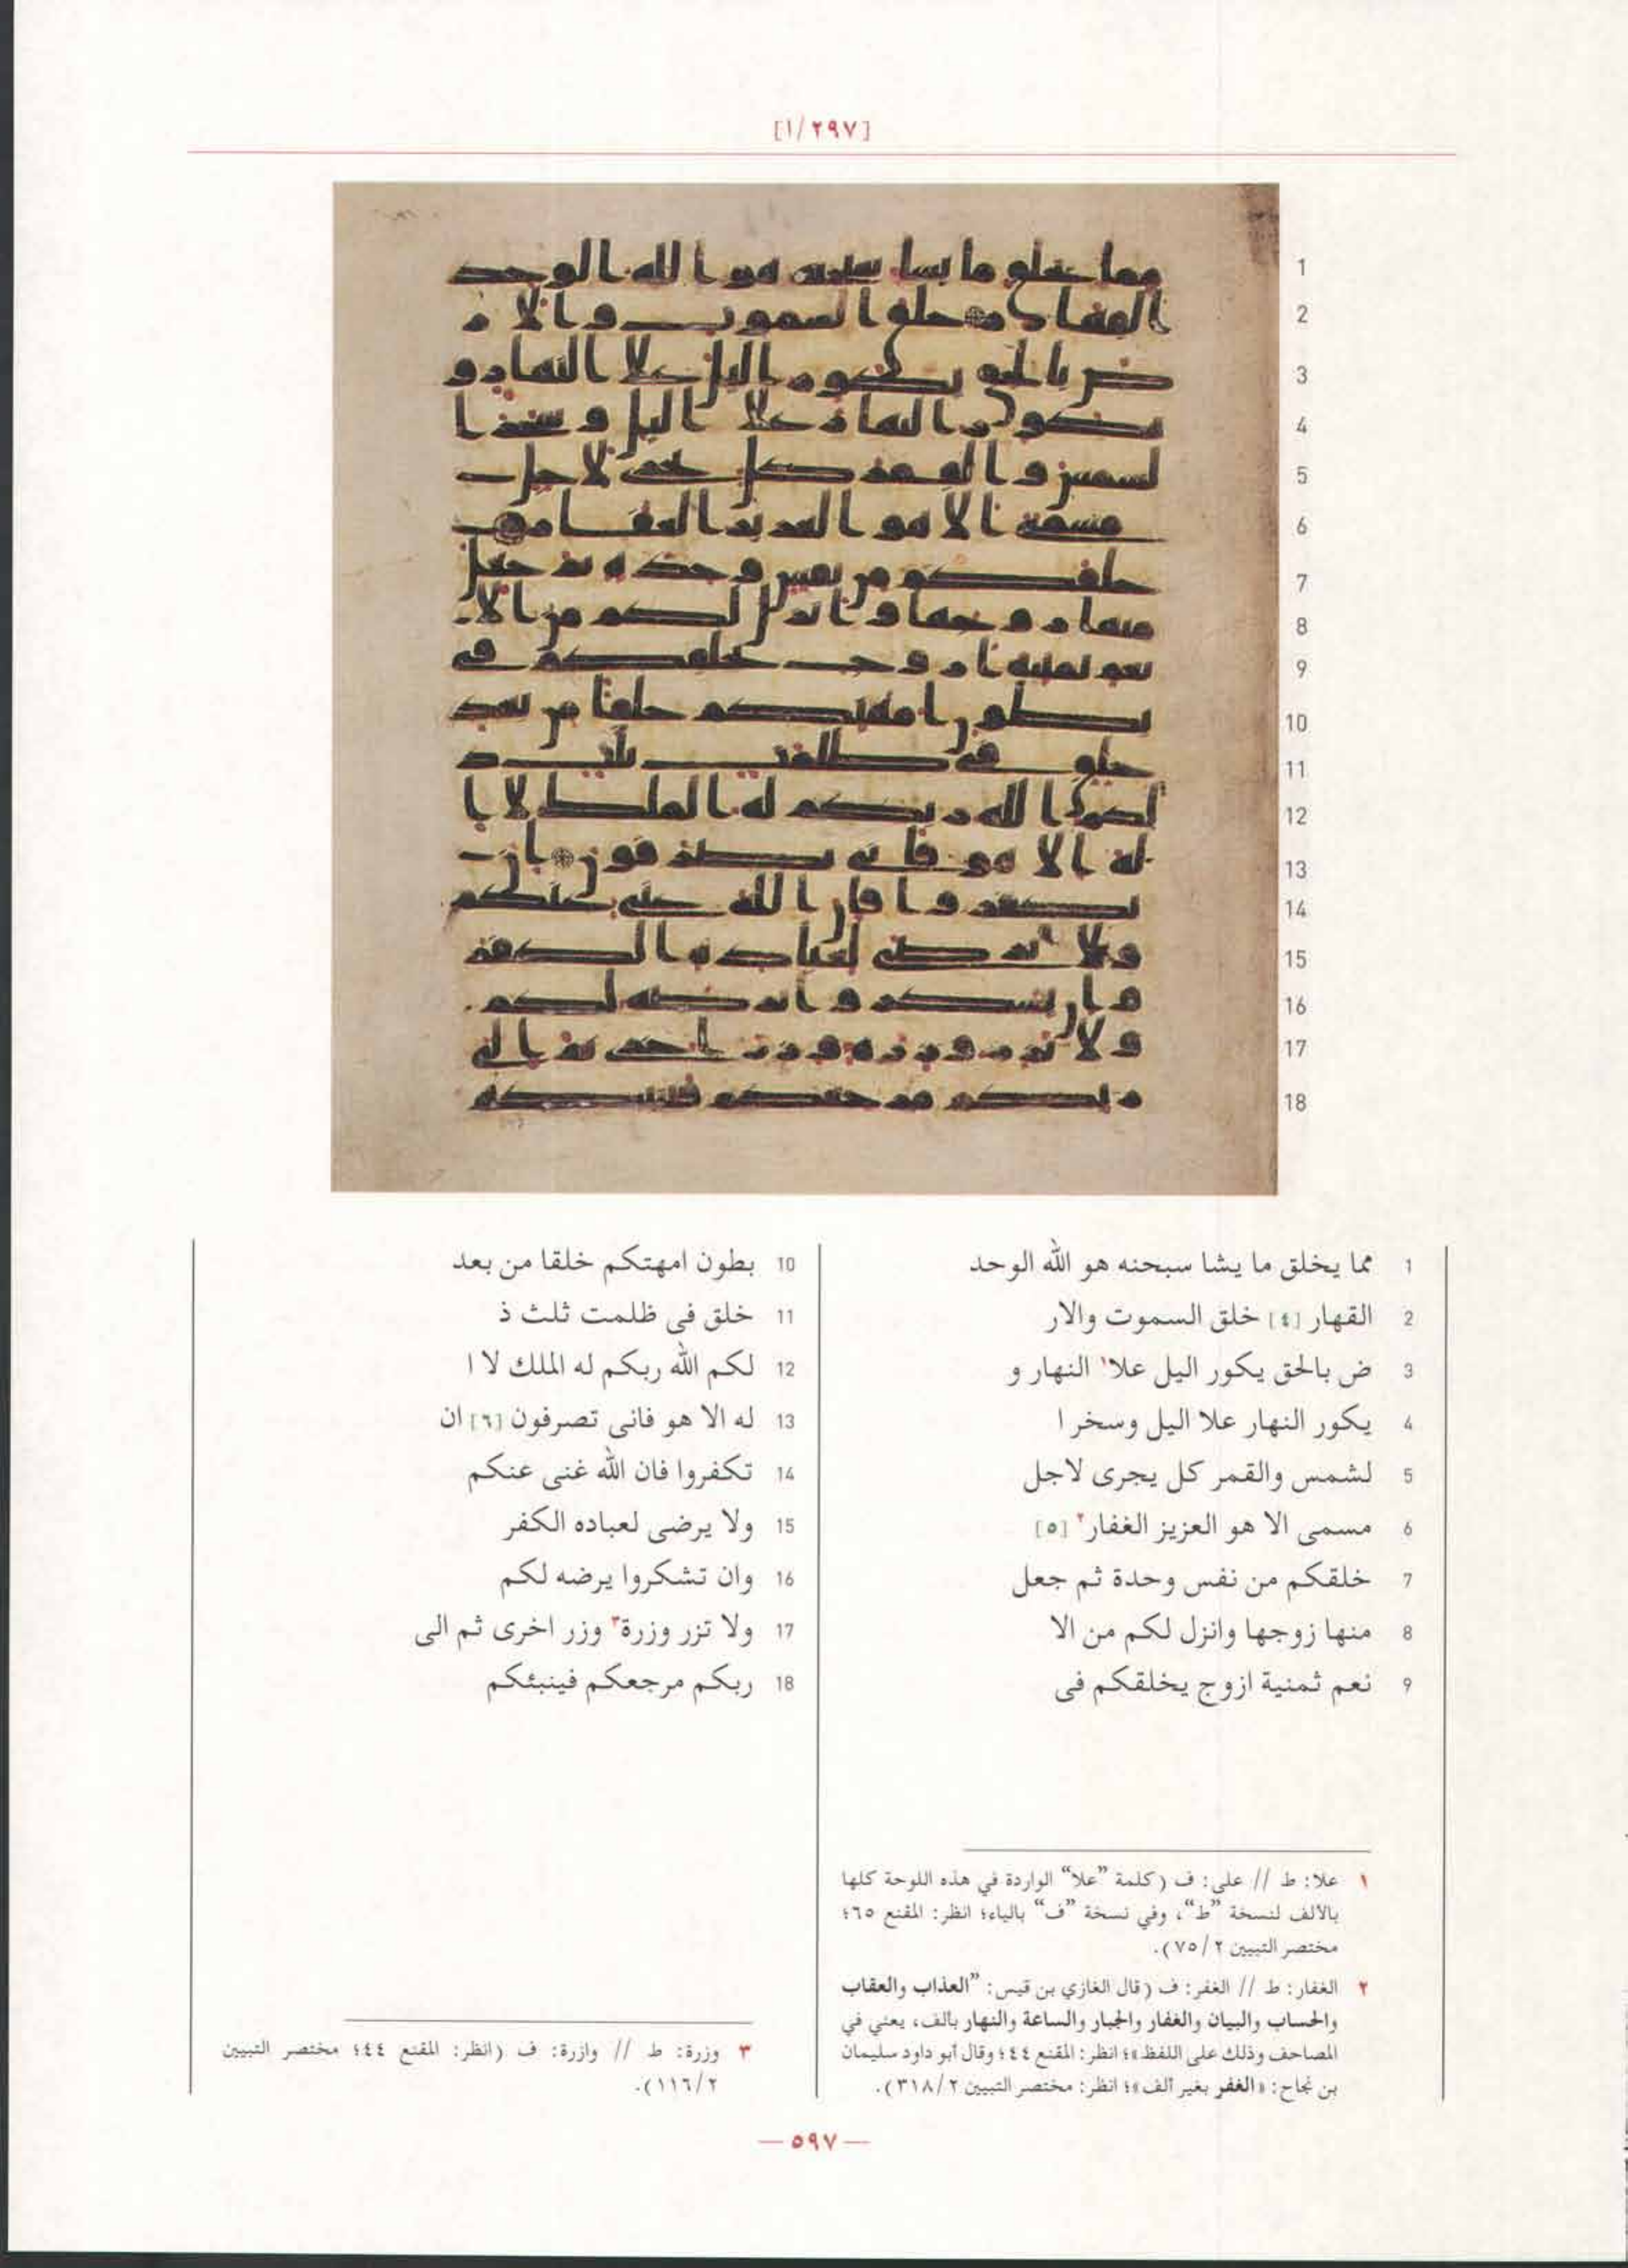 [٢٩٧/١]
1
2
3
4
5
6
7
8
9
10
11
12
13
14
15
16
17
18
1 مما يخلق ما يشا سبحنه هو الله الوحد
2 القهار [٤] خلق السموت والار
3 ض بالحق يكور اليل علا١ النهار و
4 يكور النهار علا اليل وسخر ا
5 لشمس والقمر كل يجرى لاجل
6 مسمى الا هو العزيز الغفار٢ [٥]
7 خلقكم من نفس وحدة ثم جعل
8 منها زوجها وانزل لكم من الا
9 نعم ثمنية ازوج يخلقكم فى
10 بطون امهتكم خلقا من بعد
11 خلق فى ظلمت ثلث ذ
12 لكم الله ربكم له الملك لا ا
13 له الا هو فانى تصرفون [٦] ان
14 تكفروا فان الله غنى عنكم
15 ولا يرضى لعباده الكفر
16 وان تشكروا يرضه لكم
17 ولا تزر وزرة٣ وزر اخرى ثم الى
18 ربكم مرجعكم فينبئكم
١ علا: ط // على: ف (كلمة ”علا“ الواردة في هذه اللوحة كلها
بالألف لنسخة ”ط“، وفي نسخة ”ف“ بالياء؛ انظر: المقنع ٦٥؛
مختصر التبيين ٧٥/٢).
٢ الغفار: ط // الغفر: ف (قال الغازي بن قيس: ”العذاب والعقاب
والحساب والبيان والغفار والجبار والساعة والنهار بالف، يعني في
المصاحف وذلك على اللفظ»؛ انظر: المقنع ٤٤؛ وقال أبو داود سليمان
بن نجاح: «الغفر بغير ألف»؛ انظر: مختصر التبيين ٣١٨/٢).
٣ وزرة: ط // وازرة: ف (انظر: المقنع ٤٤؛ مختصر التبيين
١١٦/٢).
— ٥٩٧ —